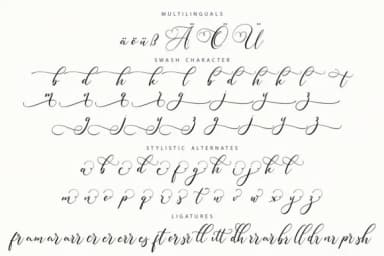 MULTILINGUALS
ä ë ü ß Ä Ö Ü
SWASH CHARACTER
b d h k l b d h k l t
m n q z g j y j y z
g j y z g j y z
STYLISTIC ALTERNATES
a b c d e f g h i j k l
m n e p q s t v w x y z
LIGATURES
fr am ar arr er er err es ft er sr ll itt dh rr ar br ll dr nr pr sh